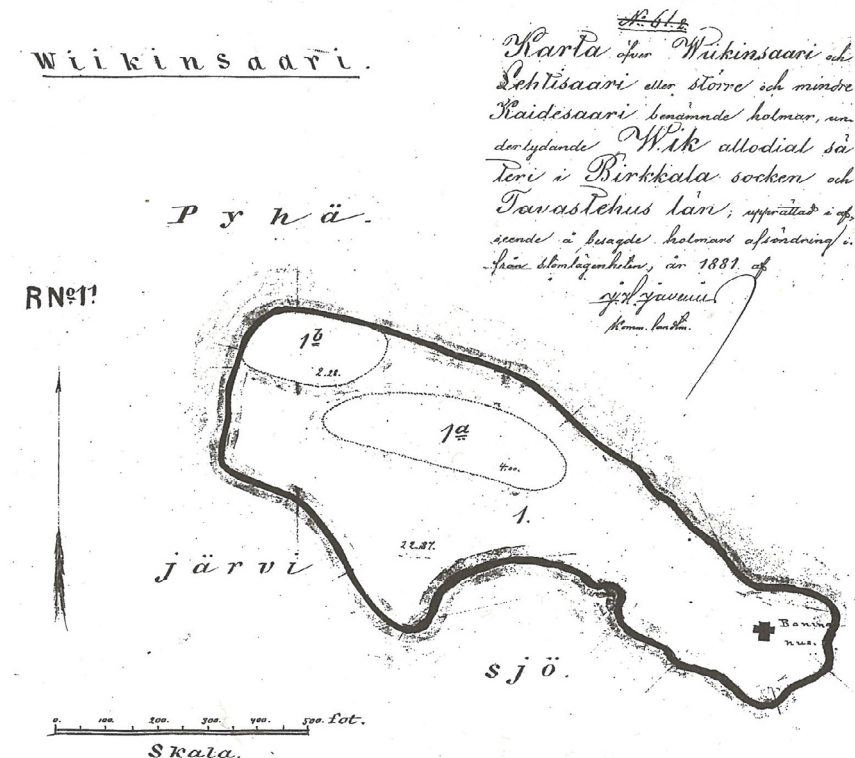 Wiikinsaari.
No. 61.2
Karta öfver Wiikinsaari och
Lehtisaari eller större och mindre
Kaidesaari benämnde holmar, un-
derlydande Wik allodial sä
teri i Birkkala socken och
Tavastehus län; upprättad i af,
seende å besagde holmars afsöndring i-
från stomlägenheten, år 1881 af
Komm. landtm.
Pyhä-
R No 1¹
1b
2.22.
1a
4.00.
1.
22.187.
järvi
sjö.
0. 100. 200. 300. 400. 500. fot.
Skala.